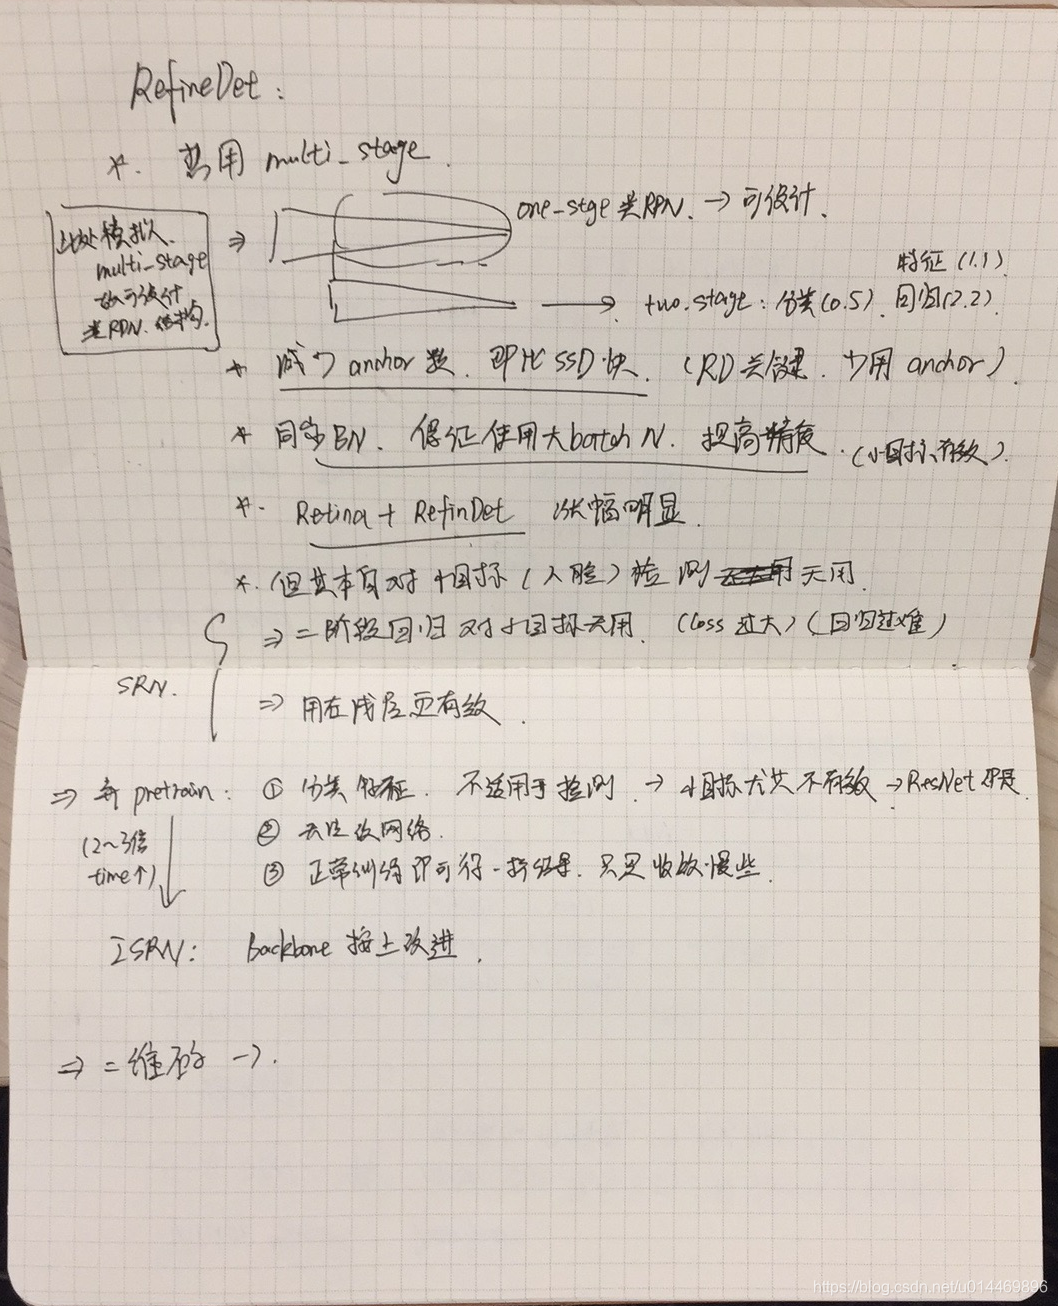 RefineDet:
*. 善用 multi_stage.
one_stge 类RPN. → 可设计.
此处模拟
multi_stage
故可设计
类RPN. 结构.
⇒
特征 (1.1)
→ two.stage: 分类(0.5). 回归(2.2)
* 减少 anchor 数. 即比 SSD 快. (RD关键. 少用 anchor).
* 同步BN. 保证使用大batch N. 提高精度. (小目标有效).
*. Retina + RefinDet 涨幅明显.
*. 但其本身对小目标(人脸)检测 无用.
⇒ 二阶段回归对小目标无用. (loss 过大) (回归过难)
SRN.
⇒ 用在浅层更有效.
⇒ 弃 pretrain: ① 分类特征. 不适用于检测. → 小目标尤其不有效 → ResNet
(2~3倍
time↑)
② 无法改网络.
③ 正常训练即可得一样结果. 只是收敛慢些.
ISRN: Backbone 按上改进.
⇒ 二维码 →.
https://blog.csdn.net/u014469896